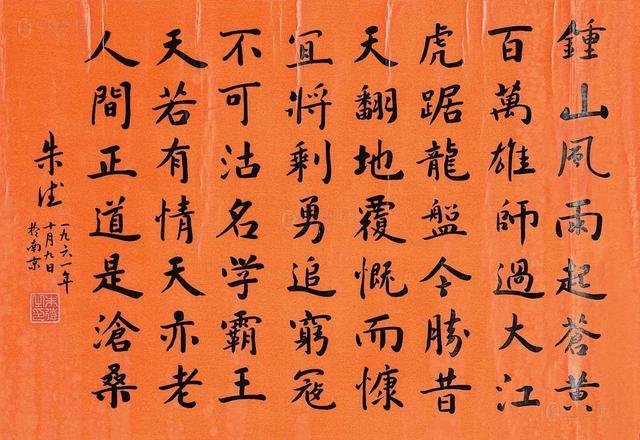 鍾山風雨起蒼黃
百萬雄師過大江
虎踞龍盤今勝昔
天翻地覆慨而慷
宜將剩勇追窮寇
不可沽名学霸王
天若有情天亦老
人間正道是滄桑
朱德
一九六一年
十月九日
於南京
朱德之印